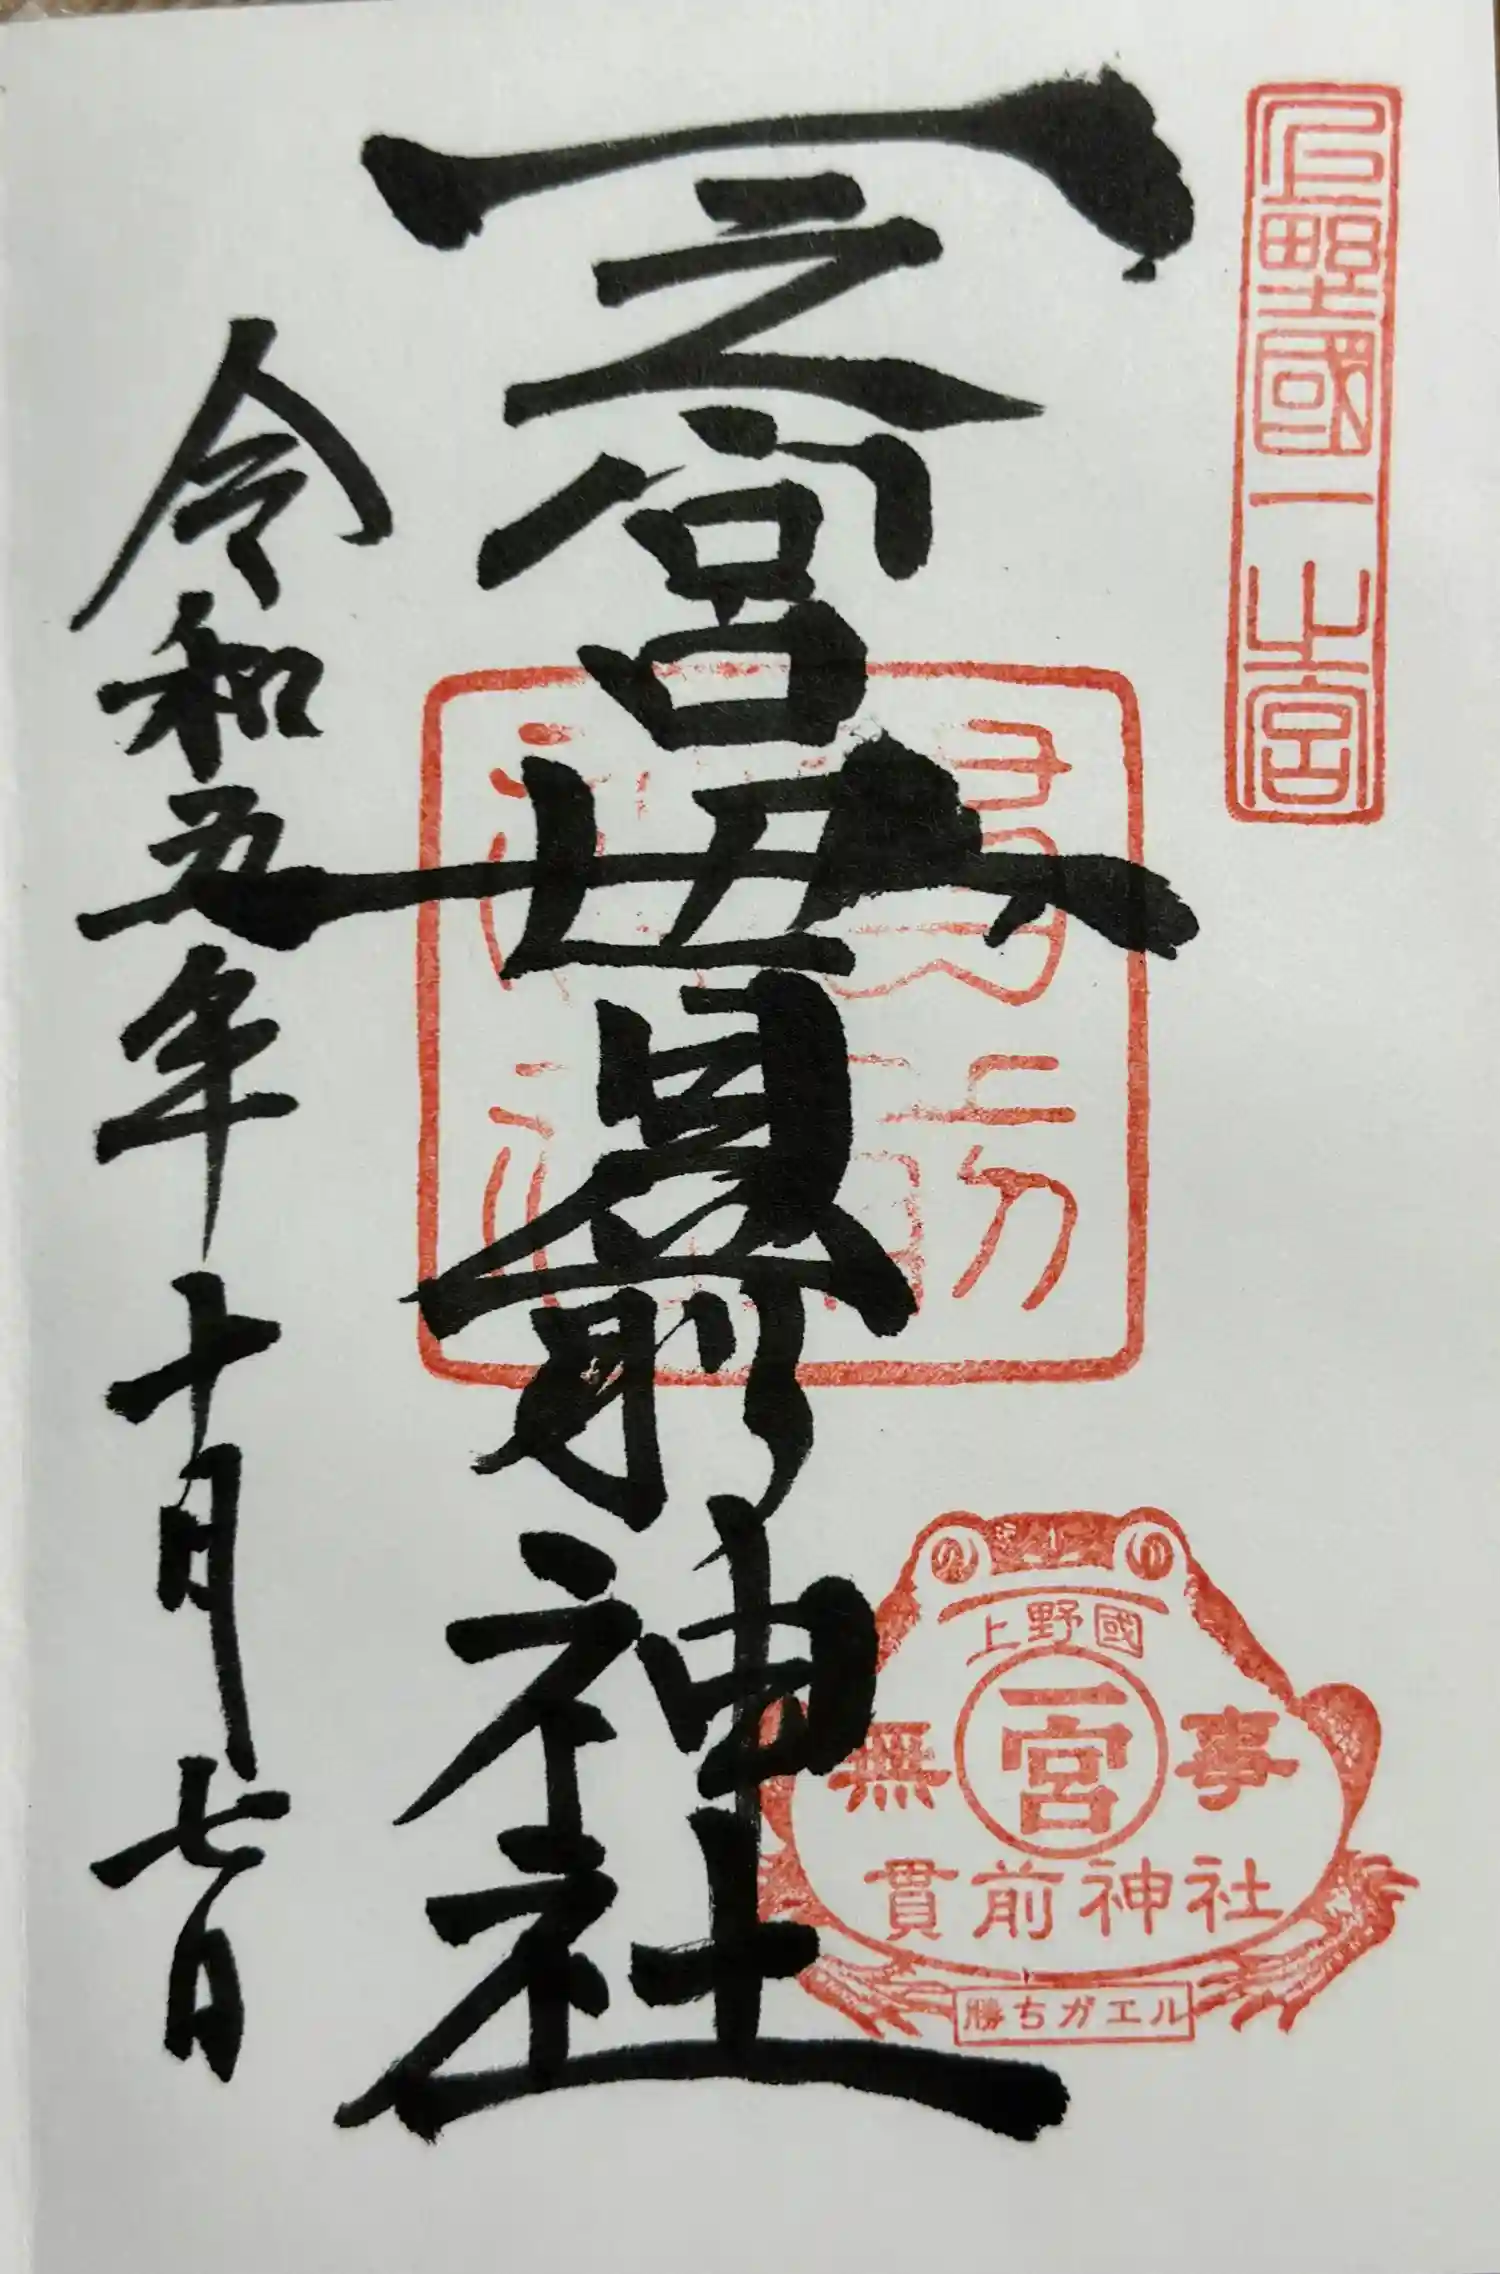 上野國一之宮
一之宮貫前神社
令和五年十月七日
上野國
一宮
無事
貫前神社
勝ちガエル